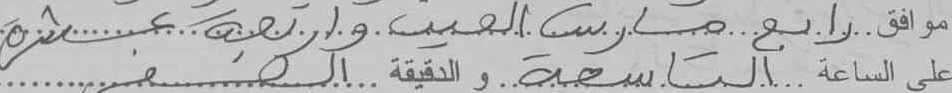 موافق رابع مارس الفين واربعة عشرة
على الساعة التاسعة و الدقيقة الصفر